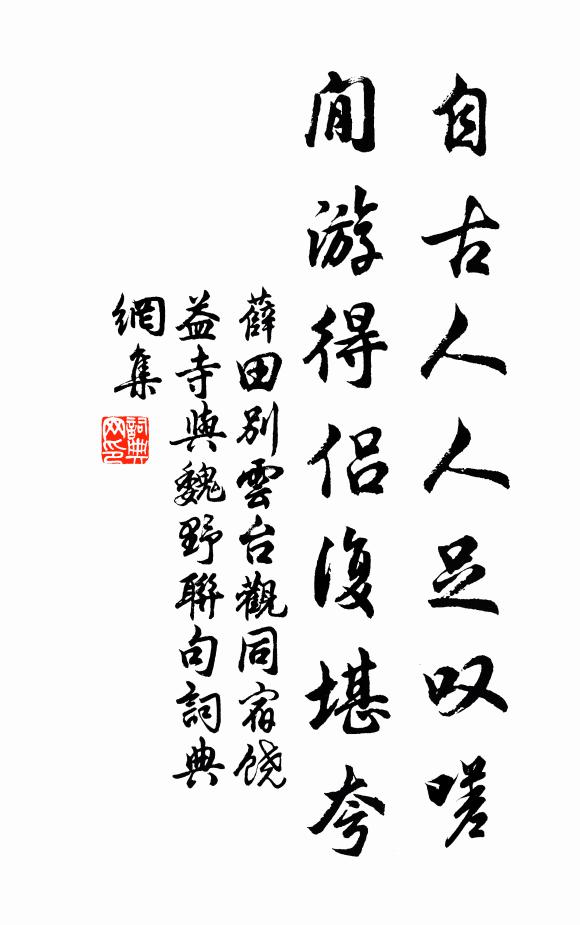 自古人人足叹嗟
閒游得侣復堪夸
薛田别雲台觀同宿饶
益寺與魏野聯句詞典
網集
詞典網印